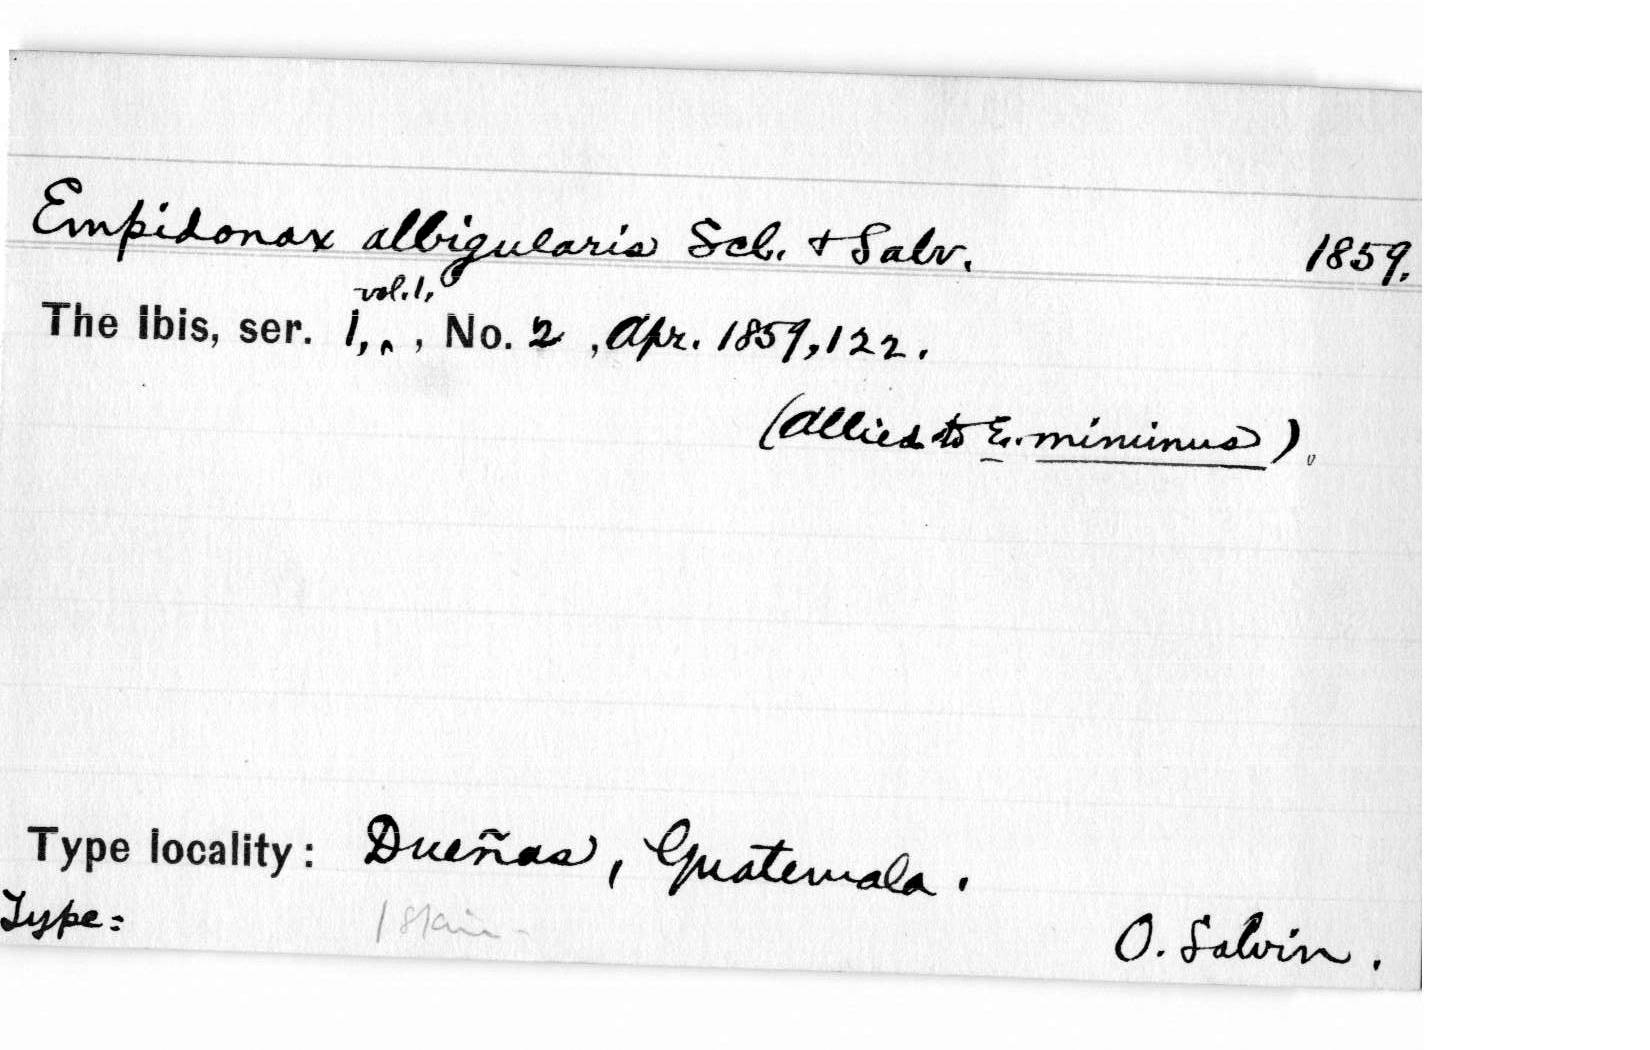 Empidonax albigularis Scl. & Salv. 1859.
The Ibis, ser. 1, vol. 1, , No. 2 , Apr. 1859, 122.
(Allied to E. minimus).
Type locality: Dueñas, Guatemala.
Type: 1 Skin -
O. Salvin.